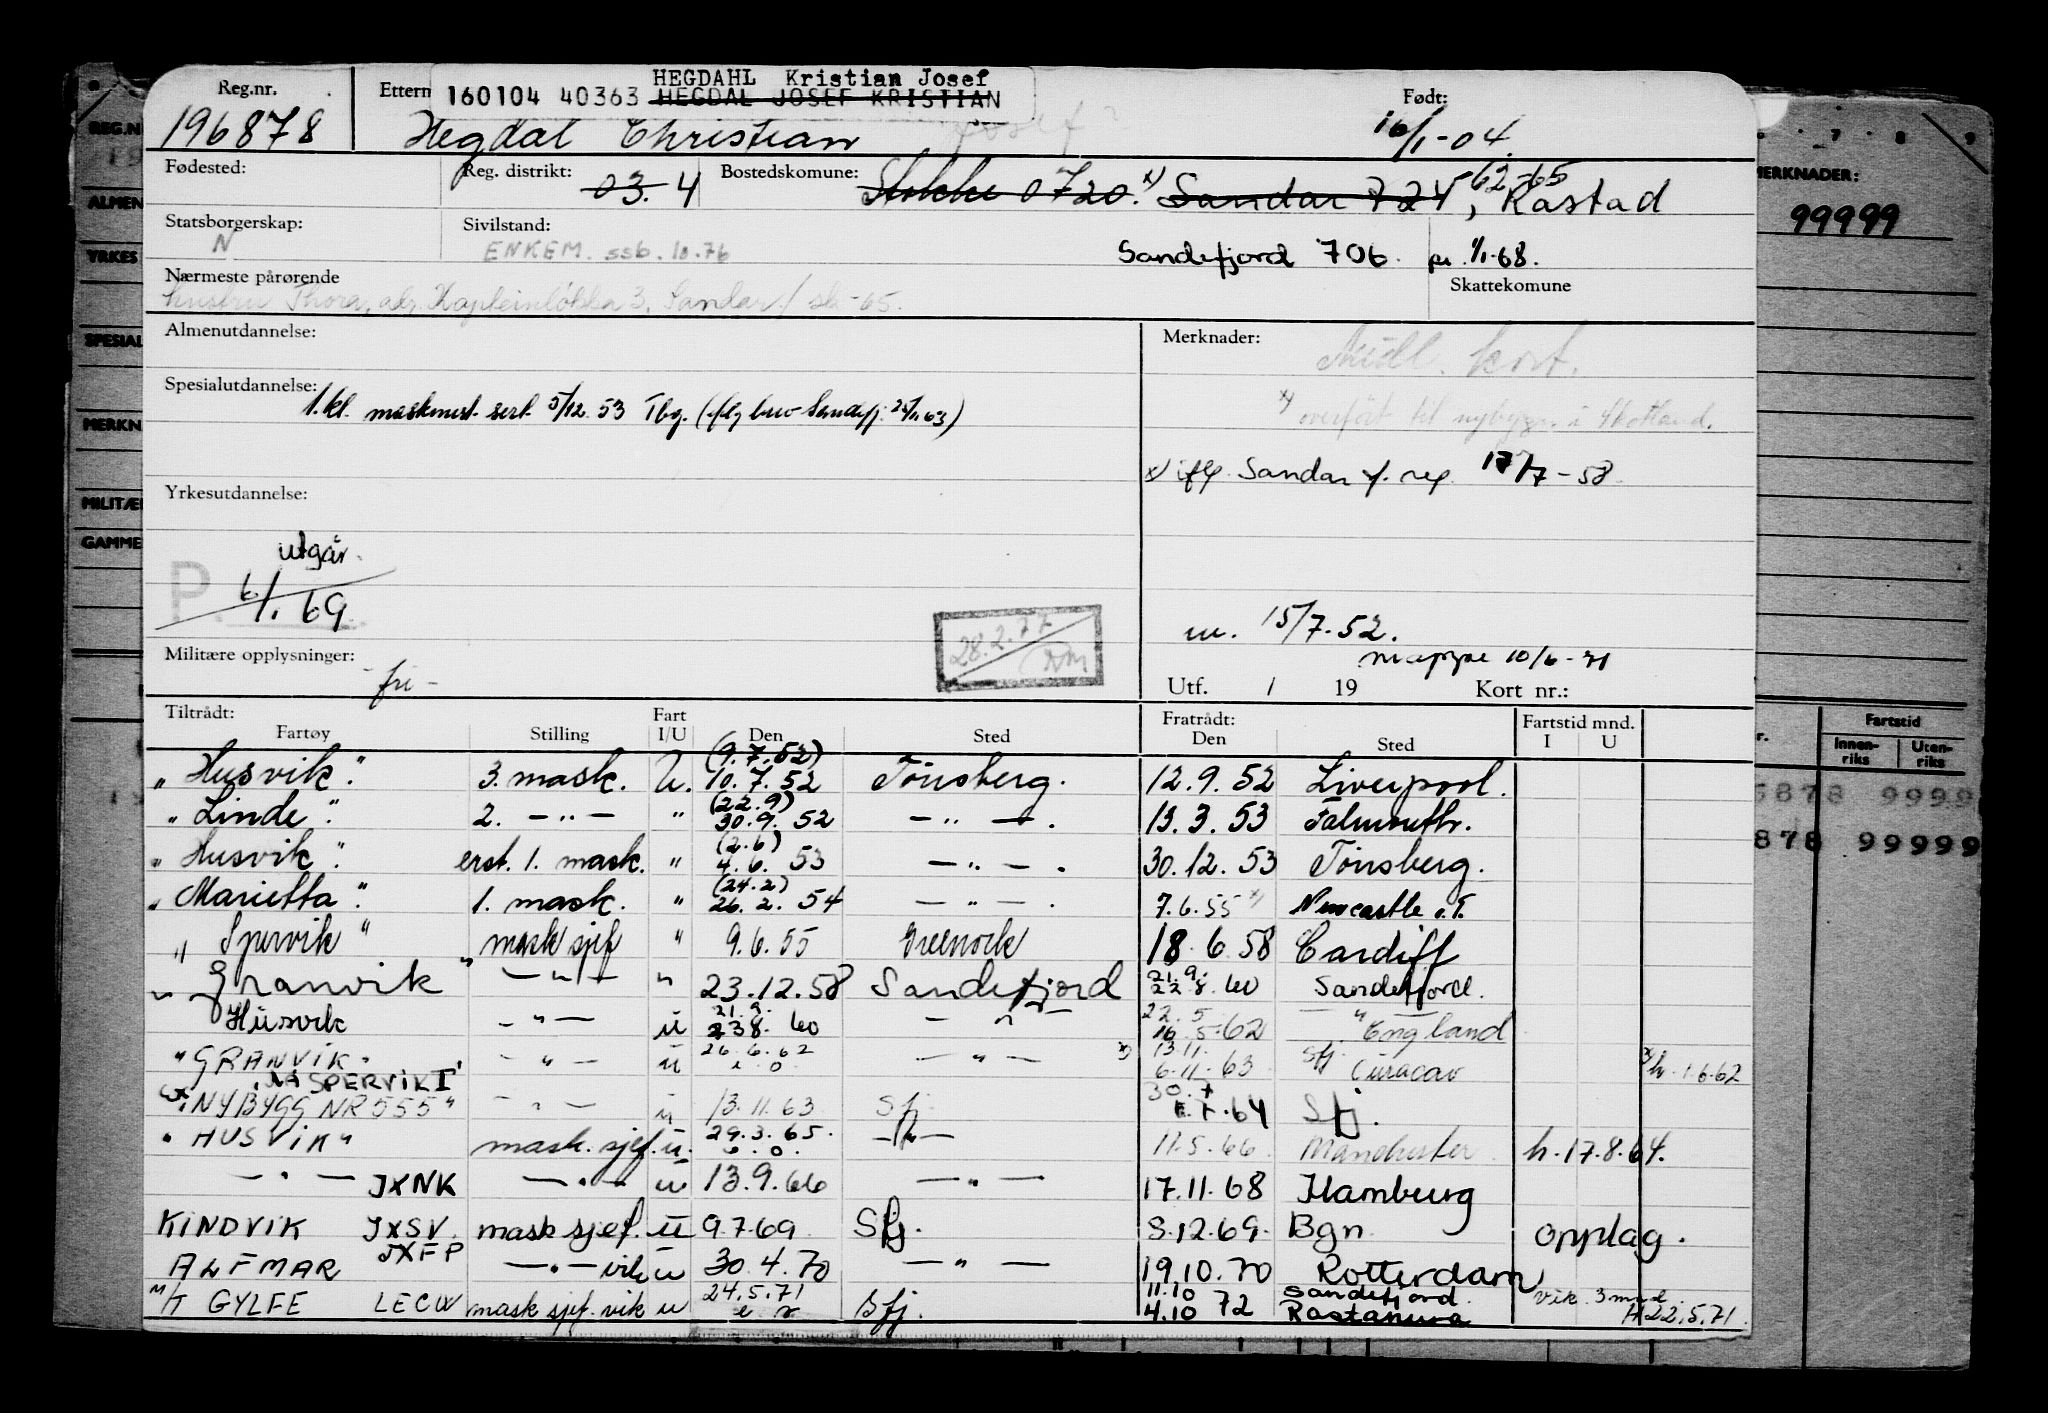 Reg.nr. Ettern HEGDAHL Kristian Josef Født:
160104 40363 HEGDAL JOSEF KRISTIAN
196878 Hegdal Christian Josef 16/1-04.
Fødested: Reg. distrikt: 03. 4 Bostedskommune: Stokke 0720. x) Sandar 724, 62-65 Råstad
Statsborgerskap: N Sivilstand: ENKEM. ssb. 10.76 Sandefjord 706. pr. 1/1-68.
Nærmeste pårørende Skattekomune
hustru Thora, adr. Kapteinløkka 3, Sandar / sk-65.
Almenutdannelse: Merknader:
Midl. kort.
Spesialutdannelse:
1. kl. maskmest. sert. 5/12. 53 Tbg. (iflg brev Sandefj. 63)
x) overført til nybygn. i Skottland.
x) iflg. Sandar f. reg. 17/7-58.
Yrkesutdannelse:
utgår.
P. 6/1. 69
28.2.77
m. 15/7.52.
mappe 10/6-71
Militære opplysninger: - fri -
Utf. / 19 Kort nr.:
Tiltrådt: Fart Fratrådt: Fartstid mnd.
Fartøy Stilling I/U Den Sted Den Sted I U
(9.7.52)
"Husvik". 3. mask. U. 10.7.52 Tönsberg. 12.9.52 Liverpool.
(22.9)
"Linde". 2. — " — " 30.9.52 — " —. 13.3.53 Falmouth.
(2.6)
"Husvik". erst. 1. mask. " 4.6.53 — " —. 30.12.53 Tönsberg.
(24.2)
"Marietta". 1. mask. " 26.2.54 — " —. 7.6.55 x) Newcastle o.T.
"Spervik" mask sjef " 9.6.55 Greenock 18.6.58 Cardiff
"Granvik" — " — " 23.12.58 Sandefjord 21.9. 22.8.60 Sandefjord.
21.9. 22.5 — " —
Husvik — " — u 23.8.60 — " — 16.5.62 England
26.6.62 13.11. Sfj.
"GRANVIK" — " — u e.o. — " — x) 6.11.63 Curacao x) h. 1.6.62
M/S SPERVIK I 30.7
"NYBYGG NR 555" — " — u 13.11.63 Sfj. 1.7.64 Sfj.
29.3.65.
"HUSVIK" mask. sjef. u. e.o. — " — 11.5.66 Manchester h. 17.8.64.
— " — JXNK — " — u 13.9.66 — " — 17.11.68 Hamburg
KINDVIK JXSV. mask sjef. u 9.7.69 Sfj. 8.12.69. Bgn. opplag.
ALFMAR JXFP — " — vik u 30.4.70 — " — 19.10.70 Rotterdam
24.5.71 11.10 Sandefjord. vik. 3 mnd.
M/T GYLFE LECW mask sjef. vik u Sfj. 4.10 72 Rastanura H 22.5.71
REG.N
ALMEN
YRKES
SPESIAL
MERKN
MILITÆR
GAMME
7 8 9
MERKNADER:
99999
Fartstid
Innen-riks Uten-riks
5878 9999
878 99999